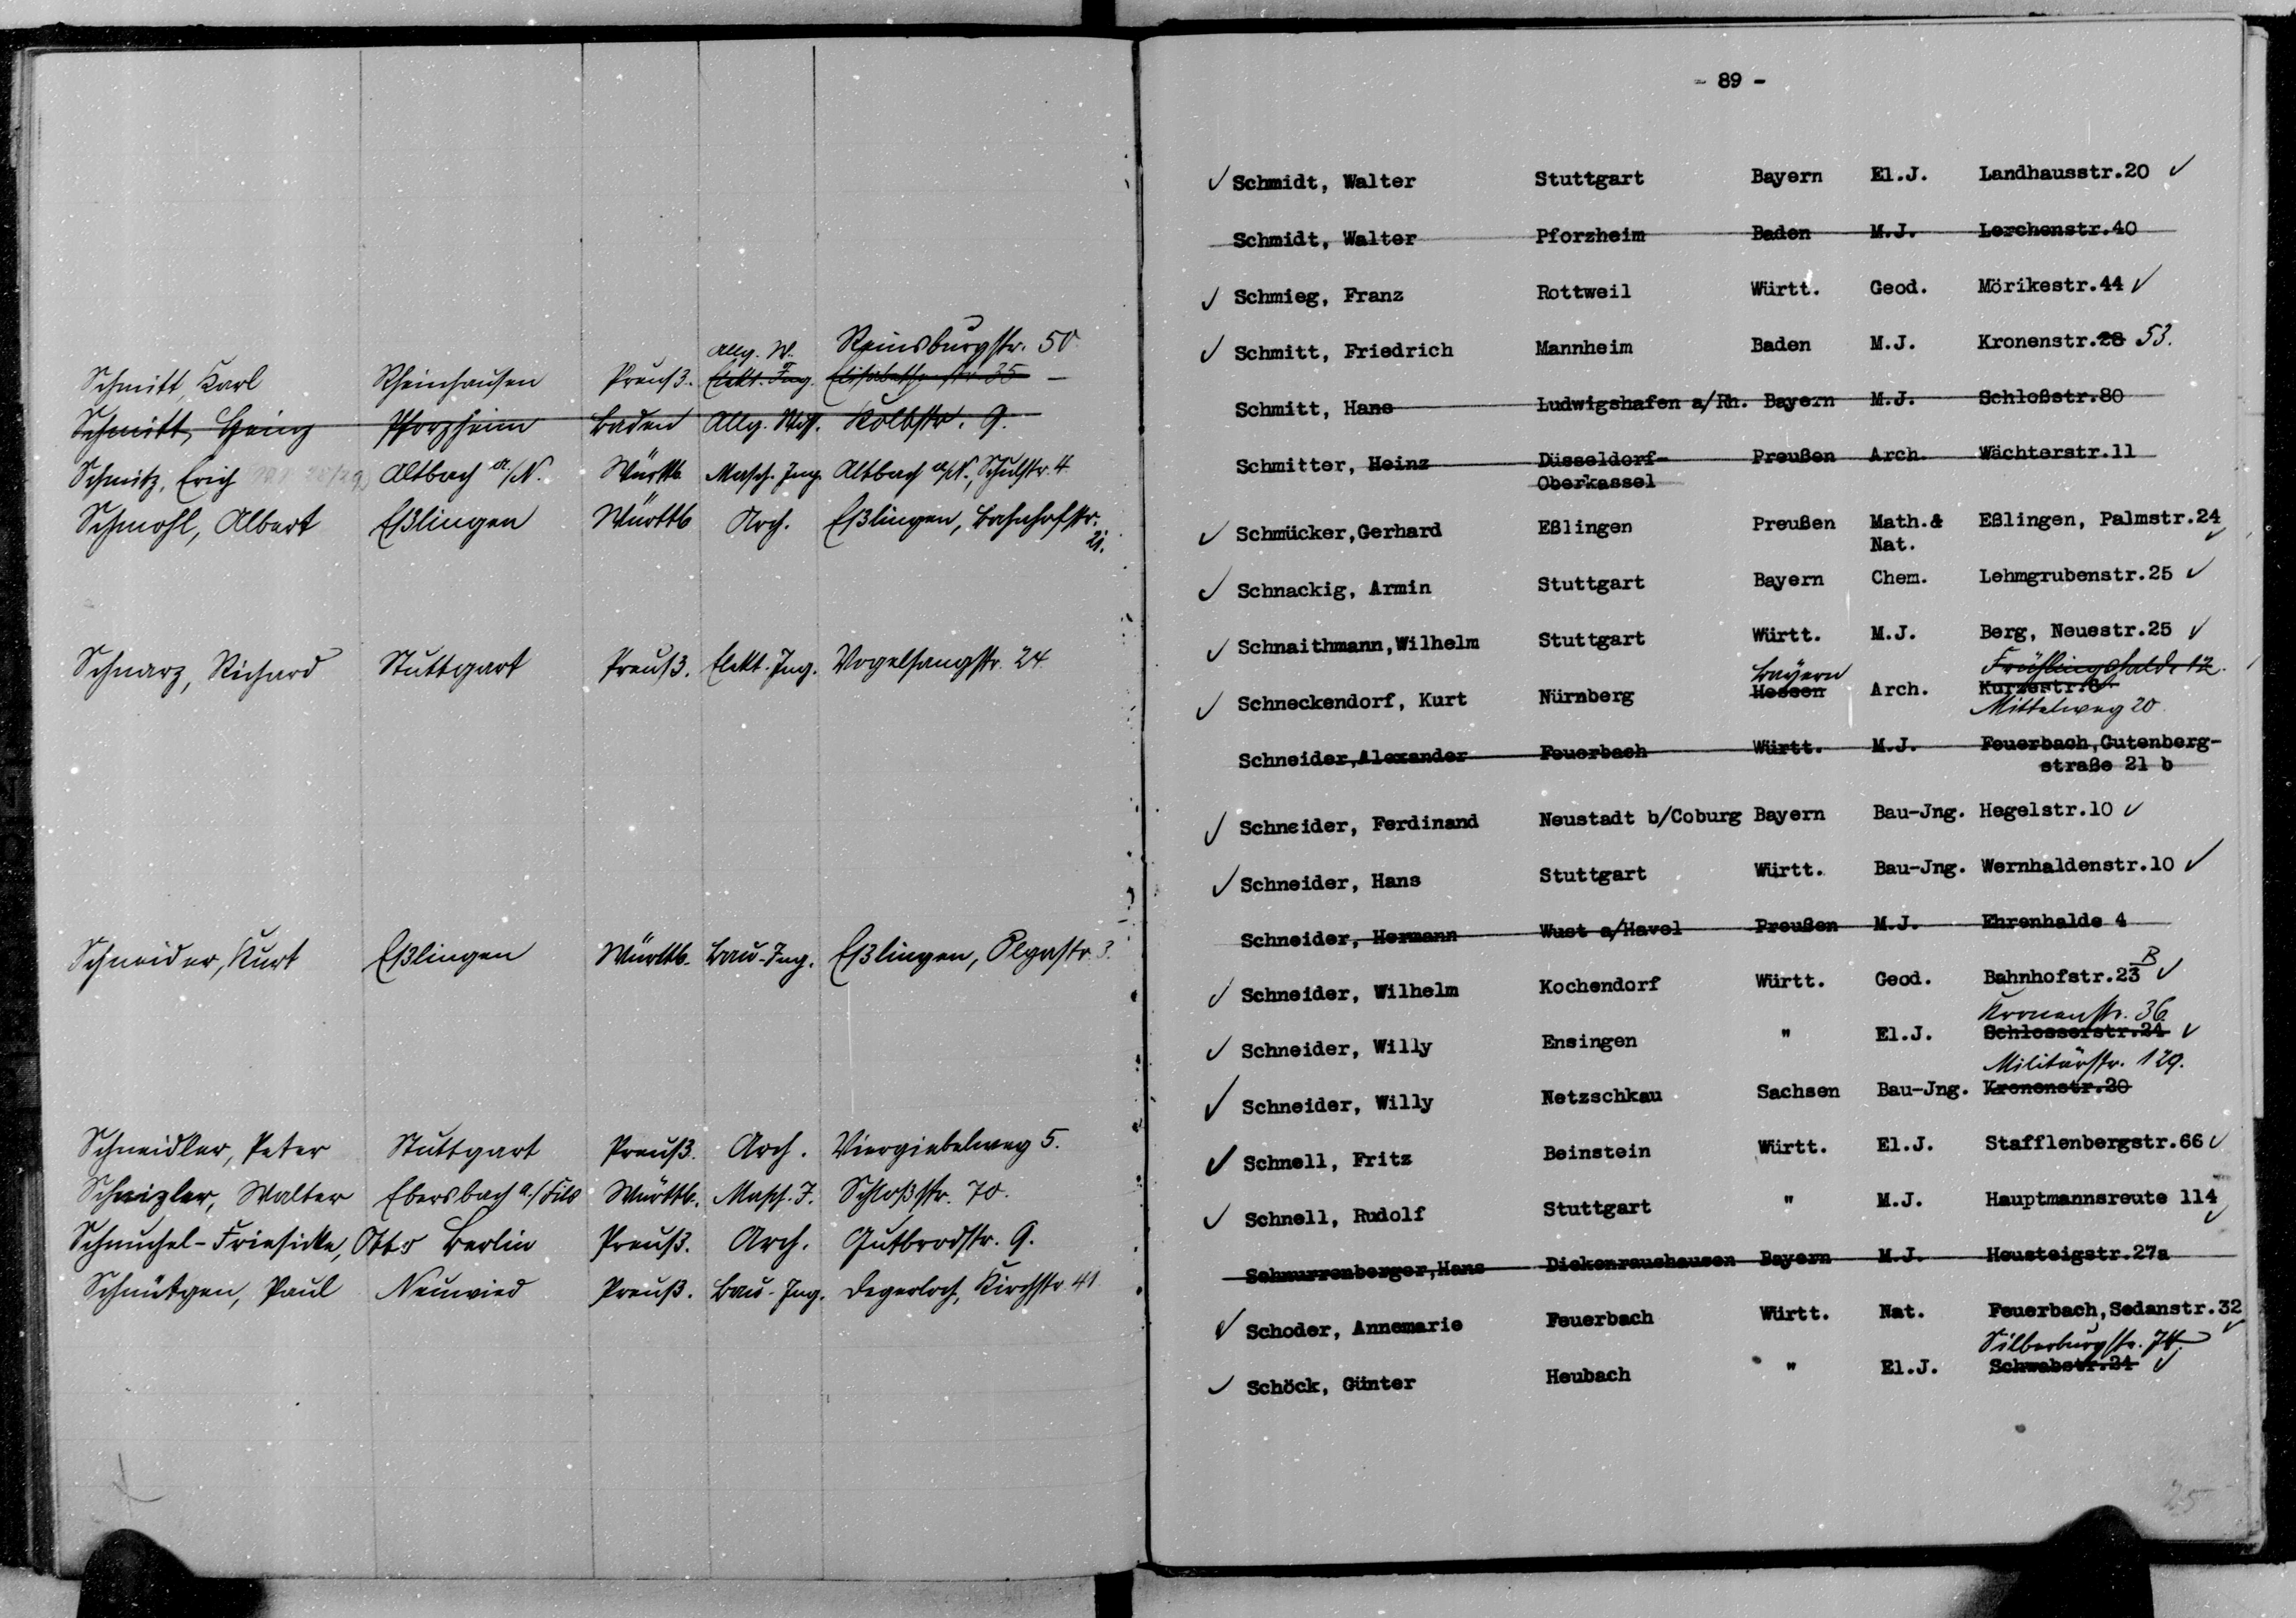 Allg. W. Reinsburgstr. 50
Schmitt, Karl Rheinhausen Preuß. Elekt. Ing. Elisabethenstr. 35 -
Schmitt, Heinz Pforzheim Baden Allg. Wiss. Kolbstr. 9.
Schmitz, Erich Altbach a./N. Württb. Masch. Ing. Altbach a/N., Schulstr. 4
Schmohl, Albert Eßlingen Württb Arch. Eßlingen, Bahnhofstr.
21.
Schnarz, Richard Stuttgart Preuß. Elekt. Ing. Vogelsangstr. 24
Schneider, Kurt Eßlingen Württb. Bau-Ing. Eßlingen, Olgastr. 3.
Schneidler, Peter Stuttgart Preuß. Arch. Viergiebelweg 5.
Schnizler, Walter Ebersbach a./Fils Württb. Masch. I. Schloßstr. 70.
Schnuchel-Friesicke, Otto Berlin Preuß. Arch. Gutbrodstr. 9.
Schnütgen, Paul Neuwied Preuß. Bau-Ing. Degerloch, Kirchstr. 41
- 89 -
✓ Schmidt, Walter Stuttgart Bayern El.J. Landhausstr.20 ✓
Schmidt, Walter Pforzheim Baden M.J. Lerchenstr.40
✓ Schmieg, Franz Rottweil Württ. Geod. Mörikestr.44 ✓
✓ Schmitt, Friedrich Mannheim Baden M.J. Kronenstr.28 53.
Schmitt, Hans Ludwigshafen a/Rh. Bayern M.J. Schloßstr.80
Schmitter, Heinz Düsseldorf- Preußen Arch. Wächterstr.11
Oberkassel
✓ Schmücker,Gerhard Eßlingen Preußen Math.& Eßlingen, Palmstr.24 ✓
Nat.
✓ Schnackig, Armin Stuttgart Bayern Chem. Lehmgrubenstr.25 ✓
✓ Schnaithmann,Wilhelm Stuttgart Württ. M.J. Berg, Neuestr.25 ✓
Bayern Frühlingshalde 12.
✓ Schneckendorf, Kurt Nürnberg Hessen Arch. Kurzestr.6
Mittelweg 20
Schneider,Alexander Feuerbach Württ. M.J. Feuerbach,Gutenberg-
straße 21 b
✓ Schneider, Ferdinand Neustadt b/Coburg Bayern Bau-Jng. Hegelstr.10 ✓
✓ Schneider, Hans Stuttgart Württ. Bau-Jng. Wernhaldenstr.10 ✓
Schneider, Hermann Wust a/Havel Preußen M.J. Ehrenhalde 4
✓ Schneider, Wilhelm Kochendorf Württ. Geod. Bahnhofstr.23 B ✓
Kronenstr. 36
✓ Schneider, Willy Ensingen " El.J. Schlosserstr.24 ✓
Militärstr. 129.
✓ Schneider, Willy Netzschkau Sachsen Bau-Jng. Kronenstr.20
✓ Schnell, Fritz Beinstein Württ. El.J. Stafflenbergstr.66 ✓
✓ Schnell, Rudolf Stuttgart " M.J. Hauptmannsreute 114 ✓
Schnurrenberger,Hans Diekenraushausen Bayern M.J. Heusteigstr.27a
✓ Schoder, Annemarie Feuerbach Württ. Nat. Feuerbach,Sedanstr.32 ✓
Silberburgstr. 74.
✓ Schöck, Günter Heubach " El.J. Schwabstr.24 ✓
25